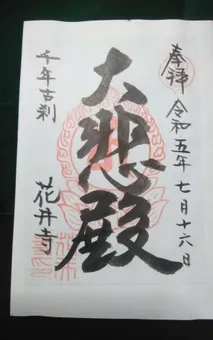 奉拝
令和五年七月十六日
大悲殿
千年古刹
花井寺